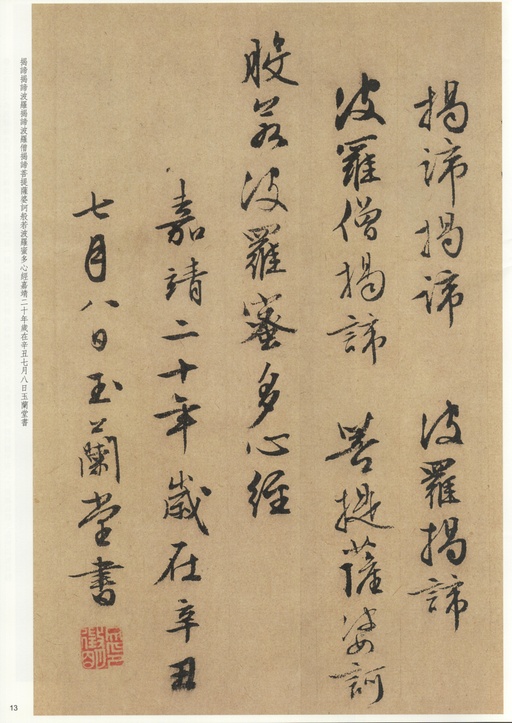 揭諦揭諦 波羅揭諦
波羅僧揭諦 菩提薩婆訶
般若波羅蜜多心經
嘉靖二十年歲在辛丑
七月八日玉蘭堂書
揭諦揭諦波羅揭諦波羅僧揭諦菩提薩婆訶般若波羅蜜多心經嘉靖二十年歲在辛丑七月八日玉蘭堂書
13